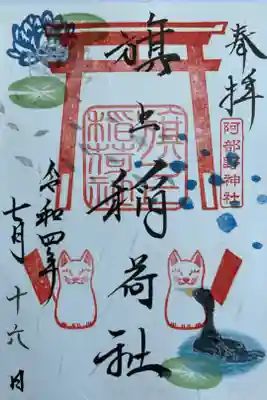 奉拝
阿部野神社
旗上稲荷社
令和四年
七月十六日